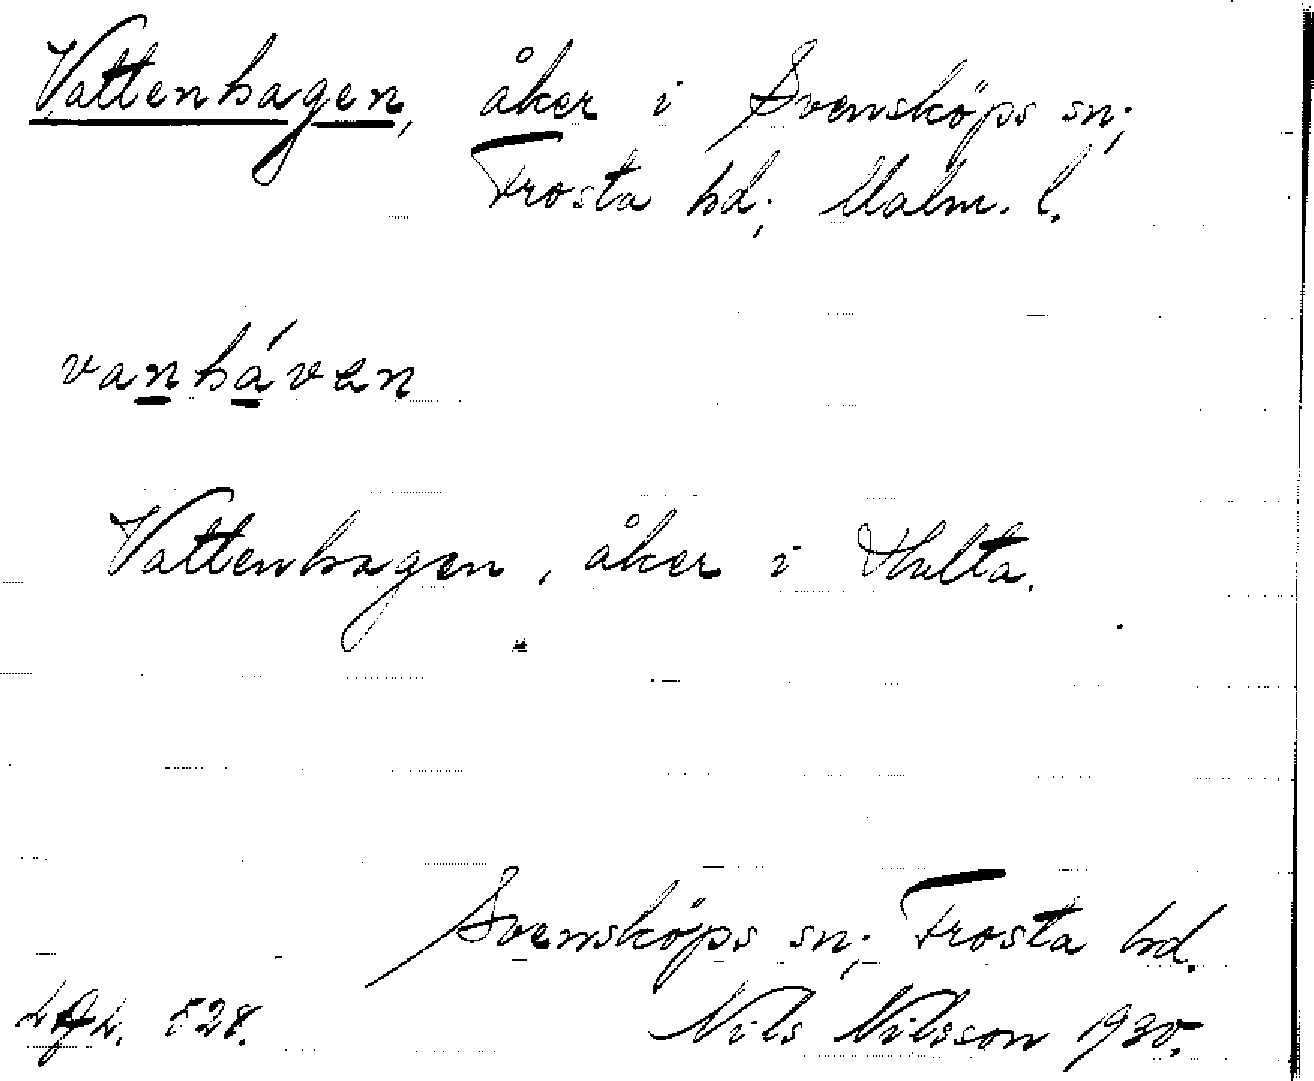 Vattenhagen, åker i Svensköps sn;
Frosta hd; Malm. l.
vanháven
Vattenhagen, åker i Hulta.
Svensköps sn; Frosta hd.
528.
Nils Nilsson 1930.